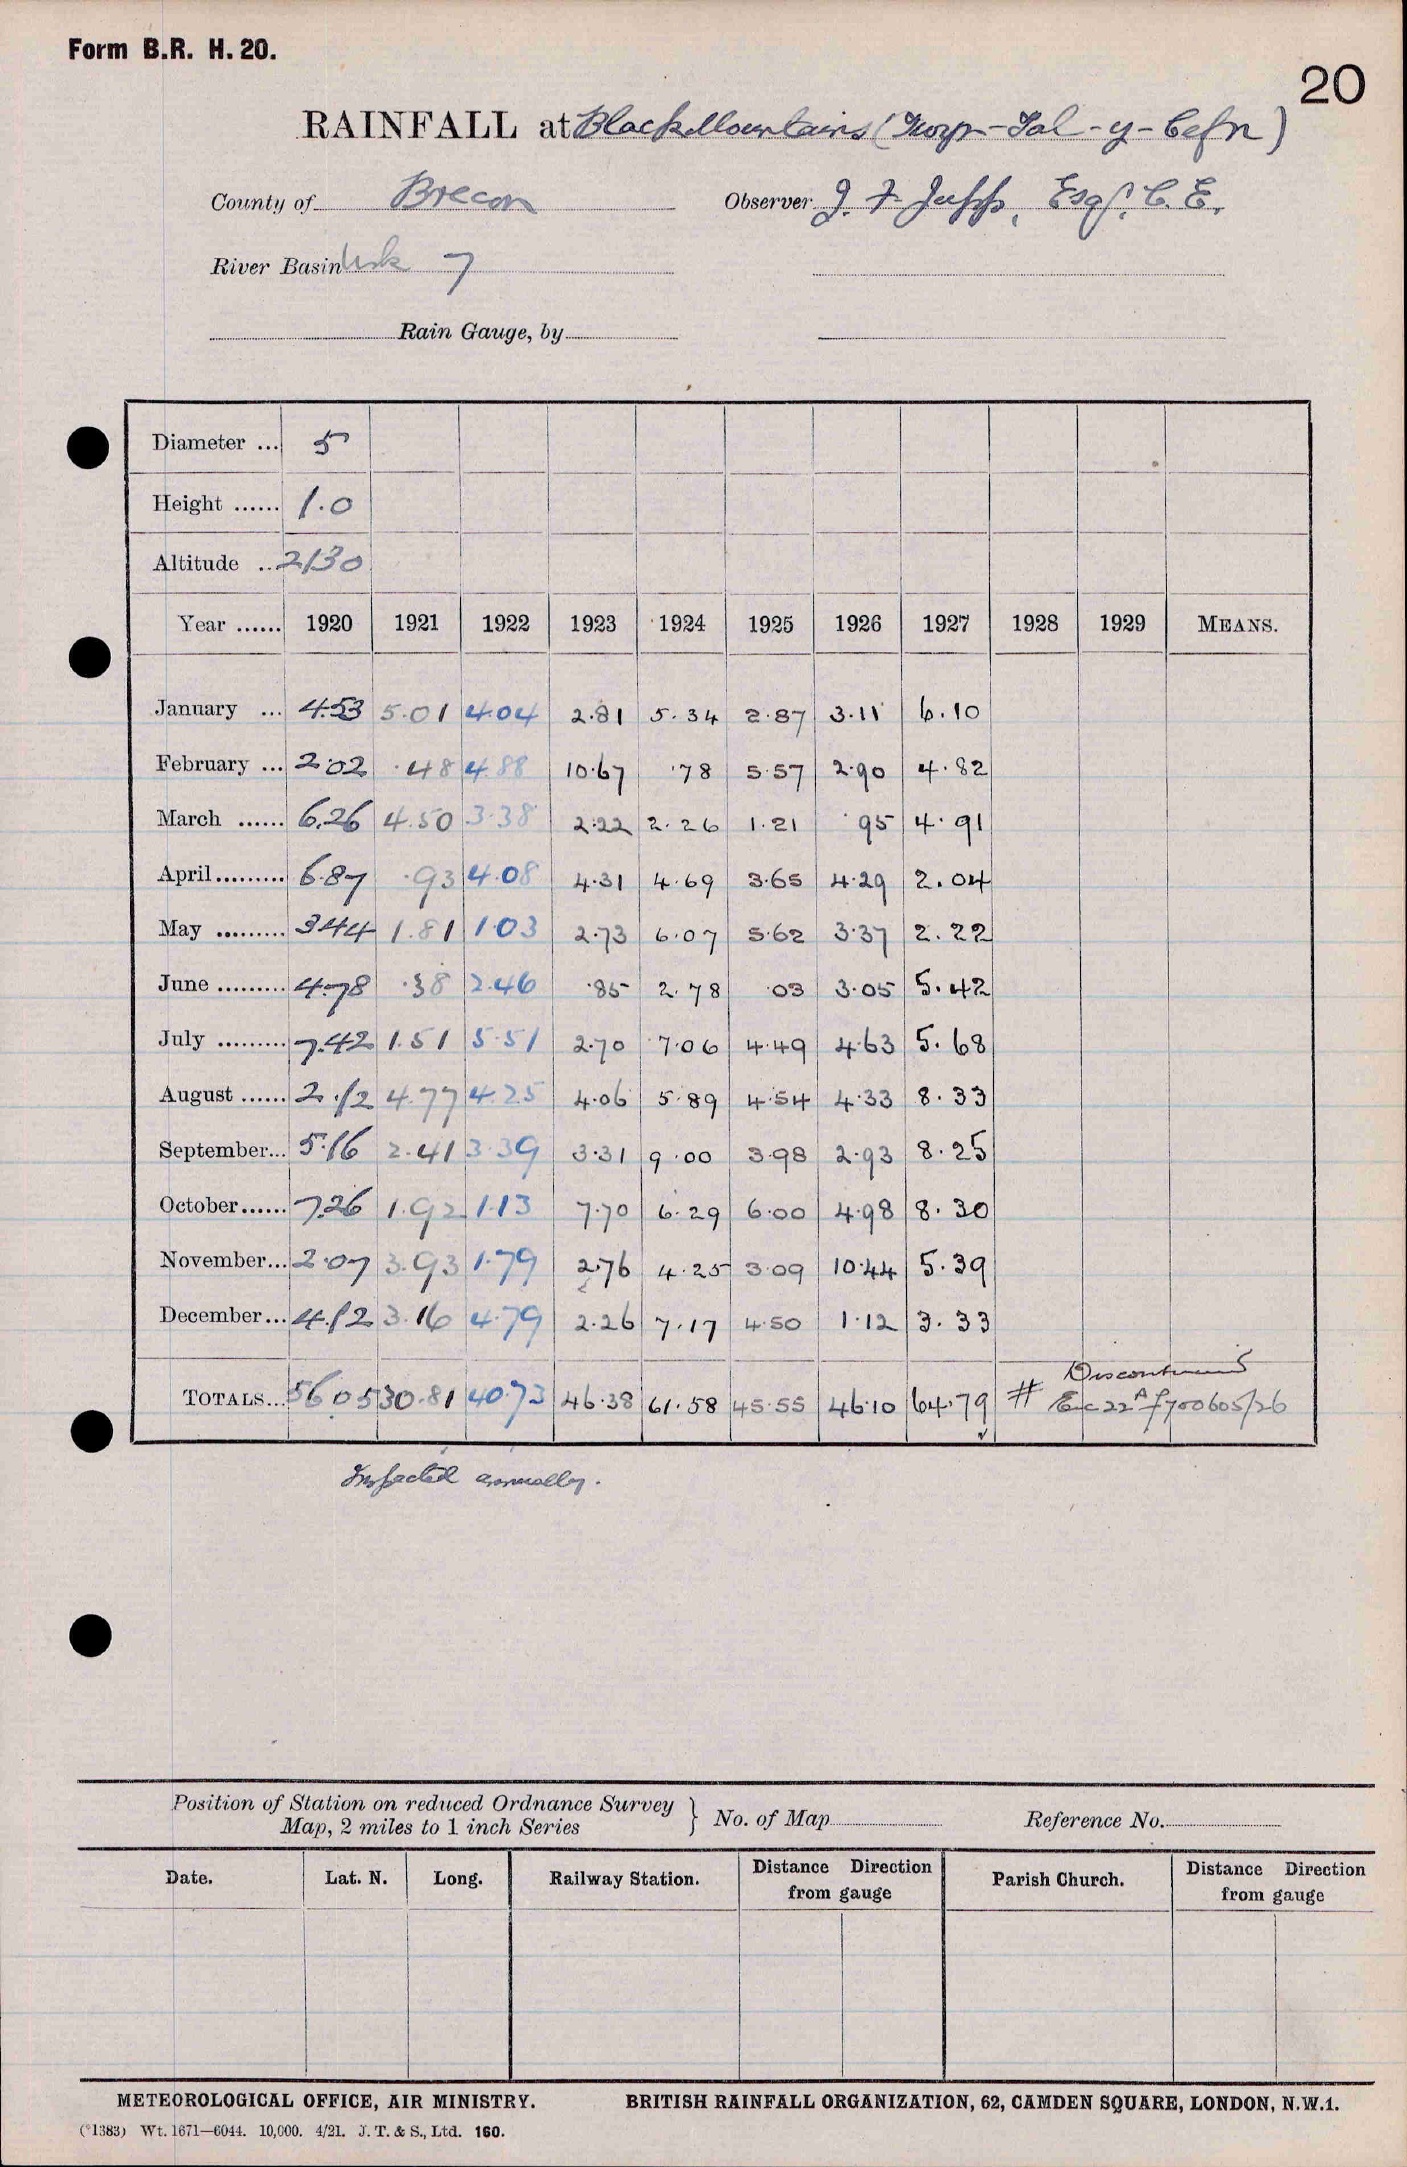 Form B.R. H. 20.
20
RAINFALL at Black Mountains (Twyn-Tal-y-Cefn)
County of Brecon Observer J. F. Jupp, Esq., C. E.
River Basin Usk 7
Rain Gauge, by
Diameter ... 5
Height ...... 1.0
Altitude .. 2130
Year ...... 1920 1921 1922 1923 1924 1925 1926 1927 1928 1929 MEANS.
January ... 4.53 5.01 4.04 2.81 5.34 2.87 3.11 6.10
February ... 2.02 .48 4.88 10.67 .78 5.57 2.90 4.82
March ...... 6.26 4.50 3.38 2.22 2.26 1.21 .95 4.91
April ......... 6.87 .93 4.08 4.31 4.69 3.65 4.29 2.04
May ......... 3.44 1.81 1.03 2.73 6.07 5.62 3.37 2.22
June ......... 4.78 .38 2.46 .85 2.78 .03 3.05 5.42
July ......... 7.42 1.51 5.51 2.70 7.06 4.49 4.63 5.68
August ...... 2.12 4.77 4.25 4.06 5.89 4.54 4.33 8.33
September... 5.16 2.41 3.39 3.31 9.00 3.98 2.93 8.25
October...... 7.26 1.92 1.13 7.70 6.29 6.00 4.98 8.30
November... 2.07 3.93 1.79 2.76 4.25 3.09 10.44 5.39
December... 4.12 3.16 4.79 2.26 7.17 4.50 1.12 3.33
Discontinued
TOTALS... 56.05 30.81 40.73 46.38 61.58 45.55 46.10 64.79 # 700605/26
Inspected annually.
Position of Station on reduced Ordnance Survey
Map, 2 miles to 1 inch Series } No. of Map Reference No.
Date. Lat. N. Long. Railway Station. Distance Direction from gauge Parish Church. Distance Direction from gauge
METEOROLOGICAL OFFICE, AIR MINISTRY. BRITISH RAINFALL ORGANIZATION, 62, CAMDEN SQUARE, LONDON, N.W.1.
(*1383) Wt. 1671—6044. 10,000. 4/21. J. T. & S., Ltd. 160.